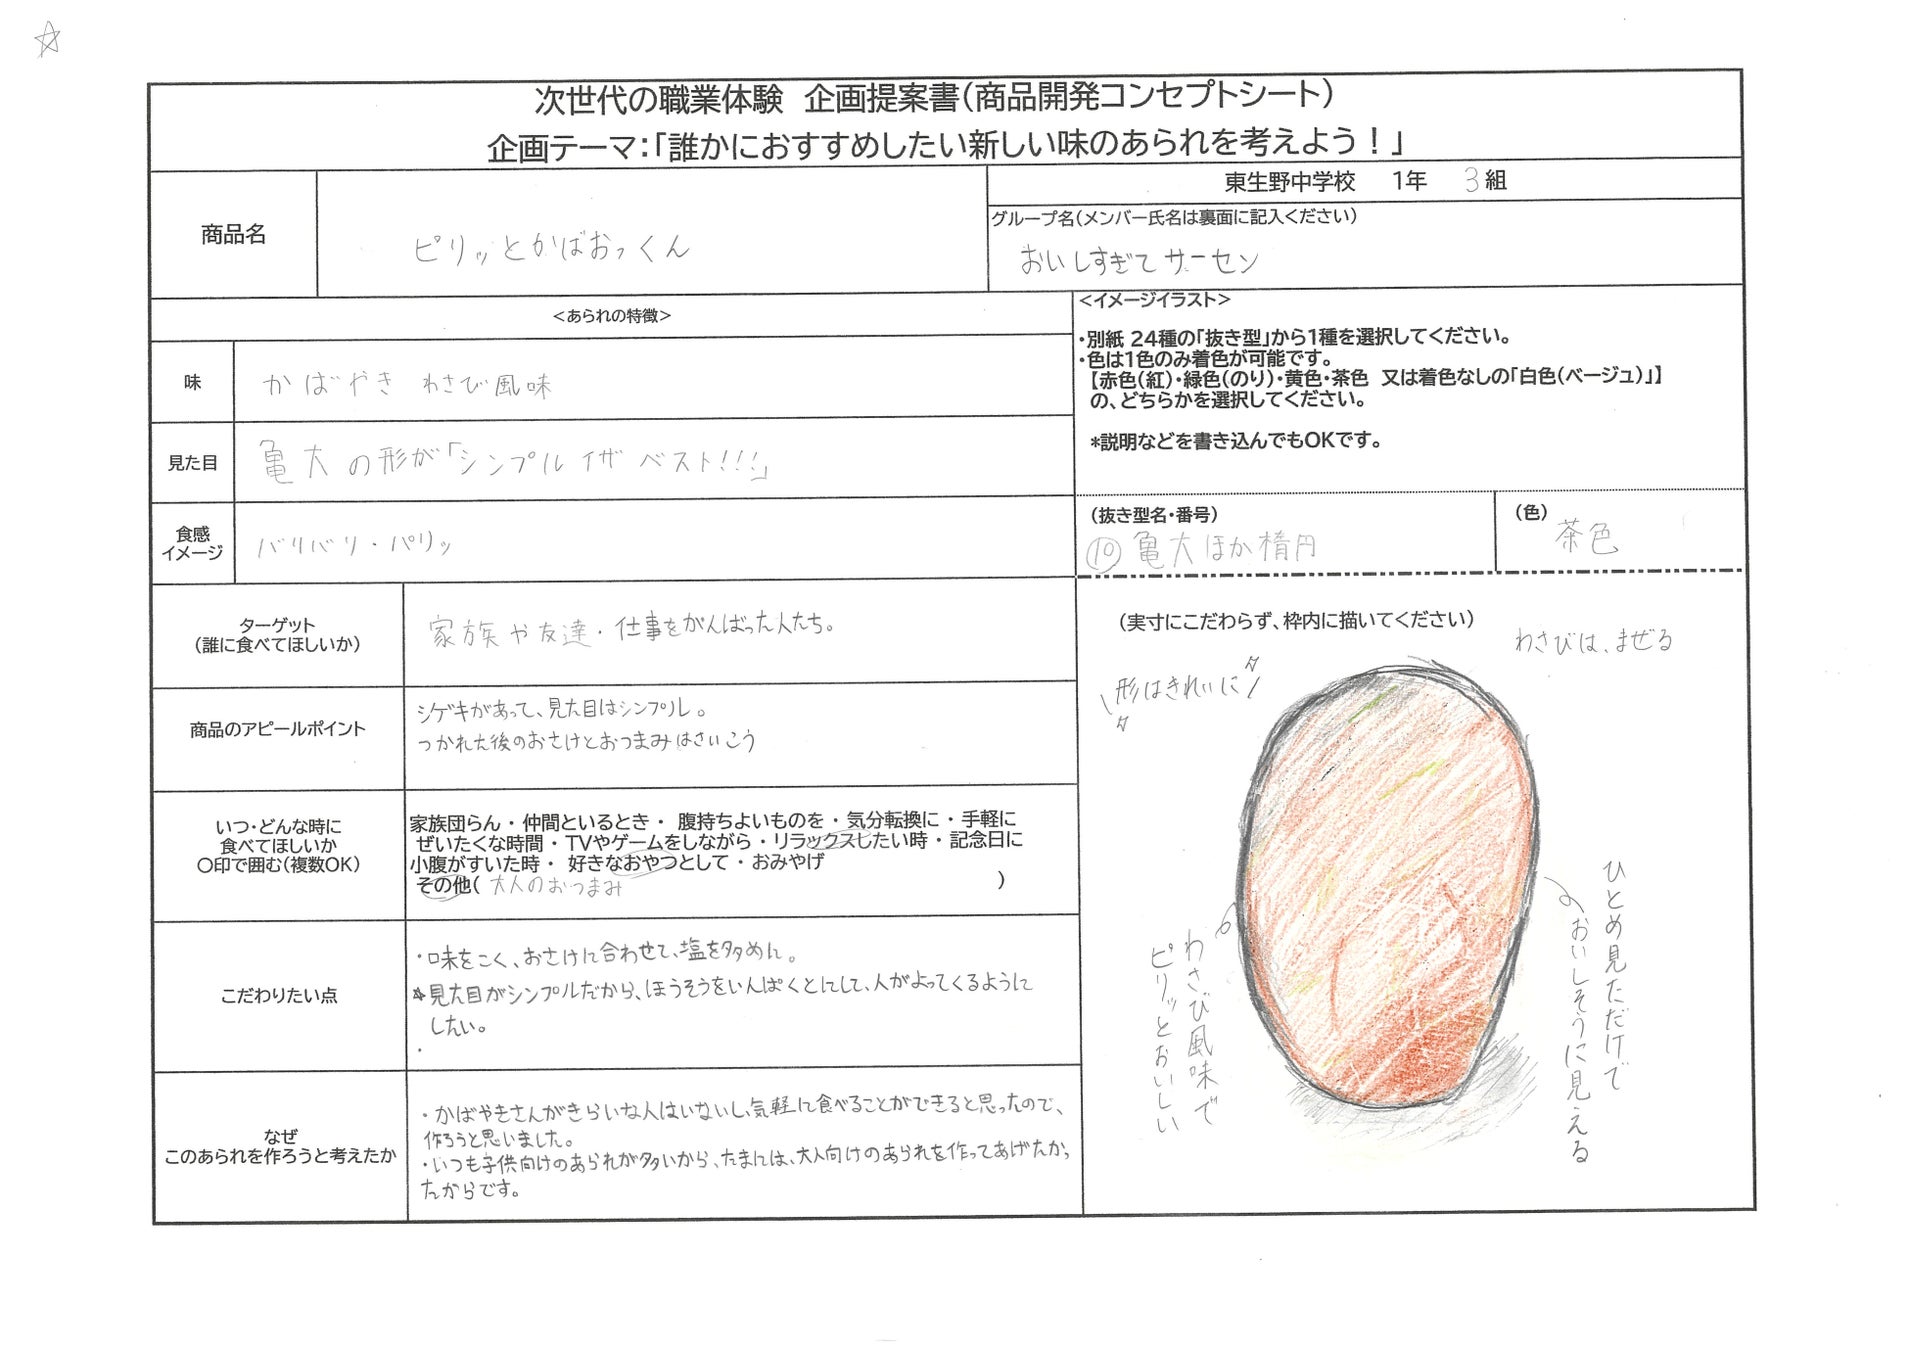 次世代の職業体験 企画提案書(商品開発コンセプトシート)
企画テーマ:「誰かにおすすめしたい新しい味のあられを考えよう!」
商品名
ピリッとかばおっくん
東生野中学校 1年 3組
グループ名(メンバー氏名は裏面に記入ください)
おいしすぎてサーセン
<あられの特徴>
味
かばやき わさび風味
見た目
亀大の形が「シンプル イザ ベスト!!!」
食感
イメージ
バリバリ・パリッ
<イメージイラスト>
・別紙 24種の「抜き型」から1種を選択してください。
・色は1色のみ着色が可能です。
【赤色(紅)・緑色(のり)・黄色・茶色 又は着色なしの「白色(ベージュ)」】
の、どちらかを選択してください。
*説明などを書き込んでもOKです。
(抜き型名・番号)
⑩ 亀大ほか楕円
(色)
茶色
ターゲット
(誰に食べてほしいか)
家族や友達・仕事をがんばった人たち。
商品のアピールポイント
シゲキがあって、見た目はシンプル。
つかれた後のおさけとおつまみはさいこう
いつ・どんな時に
食べてほしいか
○印で囲む(複数OK)
家族団らん・仲間といるとき・ 腹持ちよいものを・気分転換に・手軽に
ぜいたくな時間・TVやゲームをしながら・リラックスしたい時・記念日に
小腹がすいた時・ 好きなおやつとして・おみやげ
その他( 大人のおつまみ )
こだわりたい点
・味をこく、おさけに合わせて、塩を多めに。
☆見た目がシンプルだから、ほうそうをいんぱくとにして、人がよってくるように
したい。
・
なぜ
このあられを作ろうと考えたか
・かばやきさんがきらいな人はいないし、気軽に食べることができると思ったので、
作ろうと思いました。
・いつも子供向けのあられが多いから、たまには、大人向けのあられを作ってあげたかっ
たからです。
(実寸にこだわらず、枠内に描いてください)
わさびは、まぜる
形はきれいに
ひとめ見ただけで
おいしそうに見える
わさび風味で
ピリッとおいしい